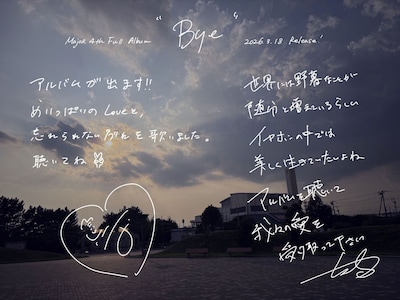 Majok 4th Full Album
"Bye"
2026.3.18 Release!
アルバムが出ます!!
めいっぱいのLoveと、
忘れられない別れを歌いました。
聴いてね
世界には野暮なことが
随分と増えているらしい
イヤホンの中では
美しく生きていたいよね
アルバムを聴いて
我々の愛を
受け取って下さい